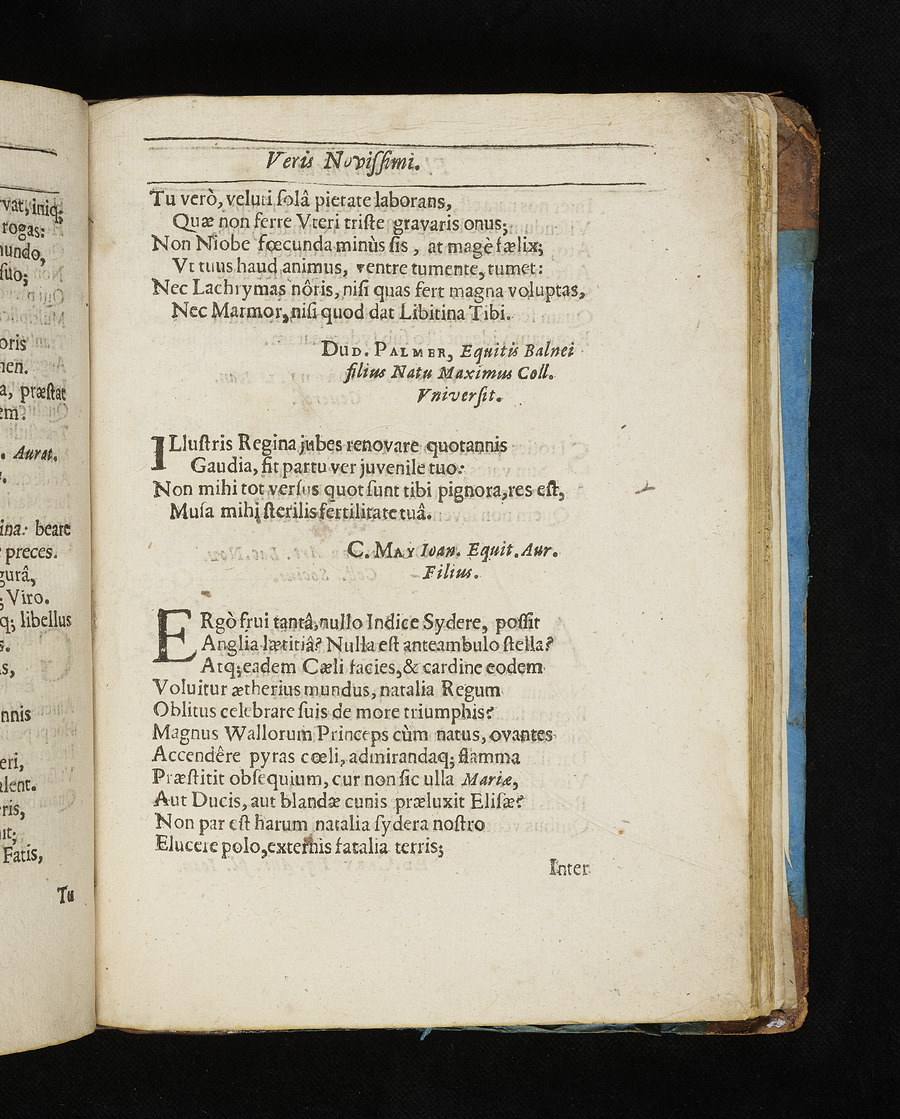 vat, iniq;
rogas:
nundo,
suo;
oris
nen.
a, præstat
em?
. Aurat.
ina: beare
preces.
gurâ,
; Viro.
q; libellus
s.
s,
nnis
eri,
alent.
ris,
it;
Fatis,
Tu
Veris Novissimi.
Tu verò, veluti solâ pietate laborans,
Quæ non ferre Vteri triste gravaris onus;
Non Niobe fœcunda minùs sis, at magè fælix;
Vt tuus haud animus, ventre tumente, tumet:
Nec Lachrymas nôris, nisi quas fert magna voluptas,
Nec Marmor, nisi quod dat Libitina Tibi.
DUD. PALMER, Equitis Balnei
filius Natu Maximus Coll.
Vniversit.
ILlustris Regina jubes renovare quotannis
Gaudia, fit partu ver juvenile tuo:
Non mihi tot versus quot sunt tibi pignora, res est,
Musa mihi sterilis fertilitate tuâ.
C. MAY Ioan. Equit. Aur.
Filius.
ERgò frui tantâ, nullo Indice Sydere, possit
Anglia lætitiâ? Nulla est anteambulo stella?
Atq; eadem Cæli facies, & cardine eodem
Voluitur ætherius mundus, natalia Regum
Oblitus celebrare suis de more triumphis?
Magnus Wallorum Princeps cùm natus, ovantes
Accendêre pyras cœli, admirandaq; flamma
Præstitit obsequium, cur non sic ulla Mariæ,
Aut Ducis, aut blandæ cunis præluxit Elisæ?
Non par est harum natalia sydera nostro
Elucere polo, externis fatalia terris;
Inter